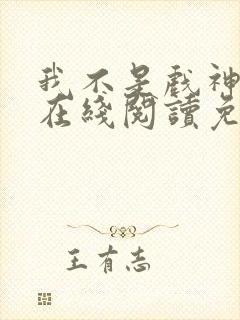 我不是戲神
在綫閱讀免
王有志